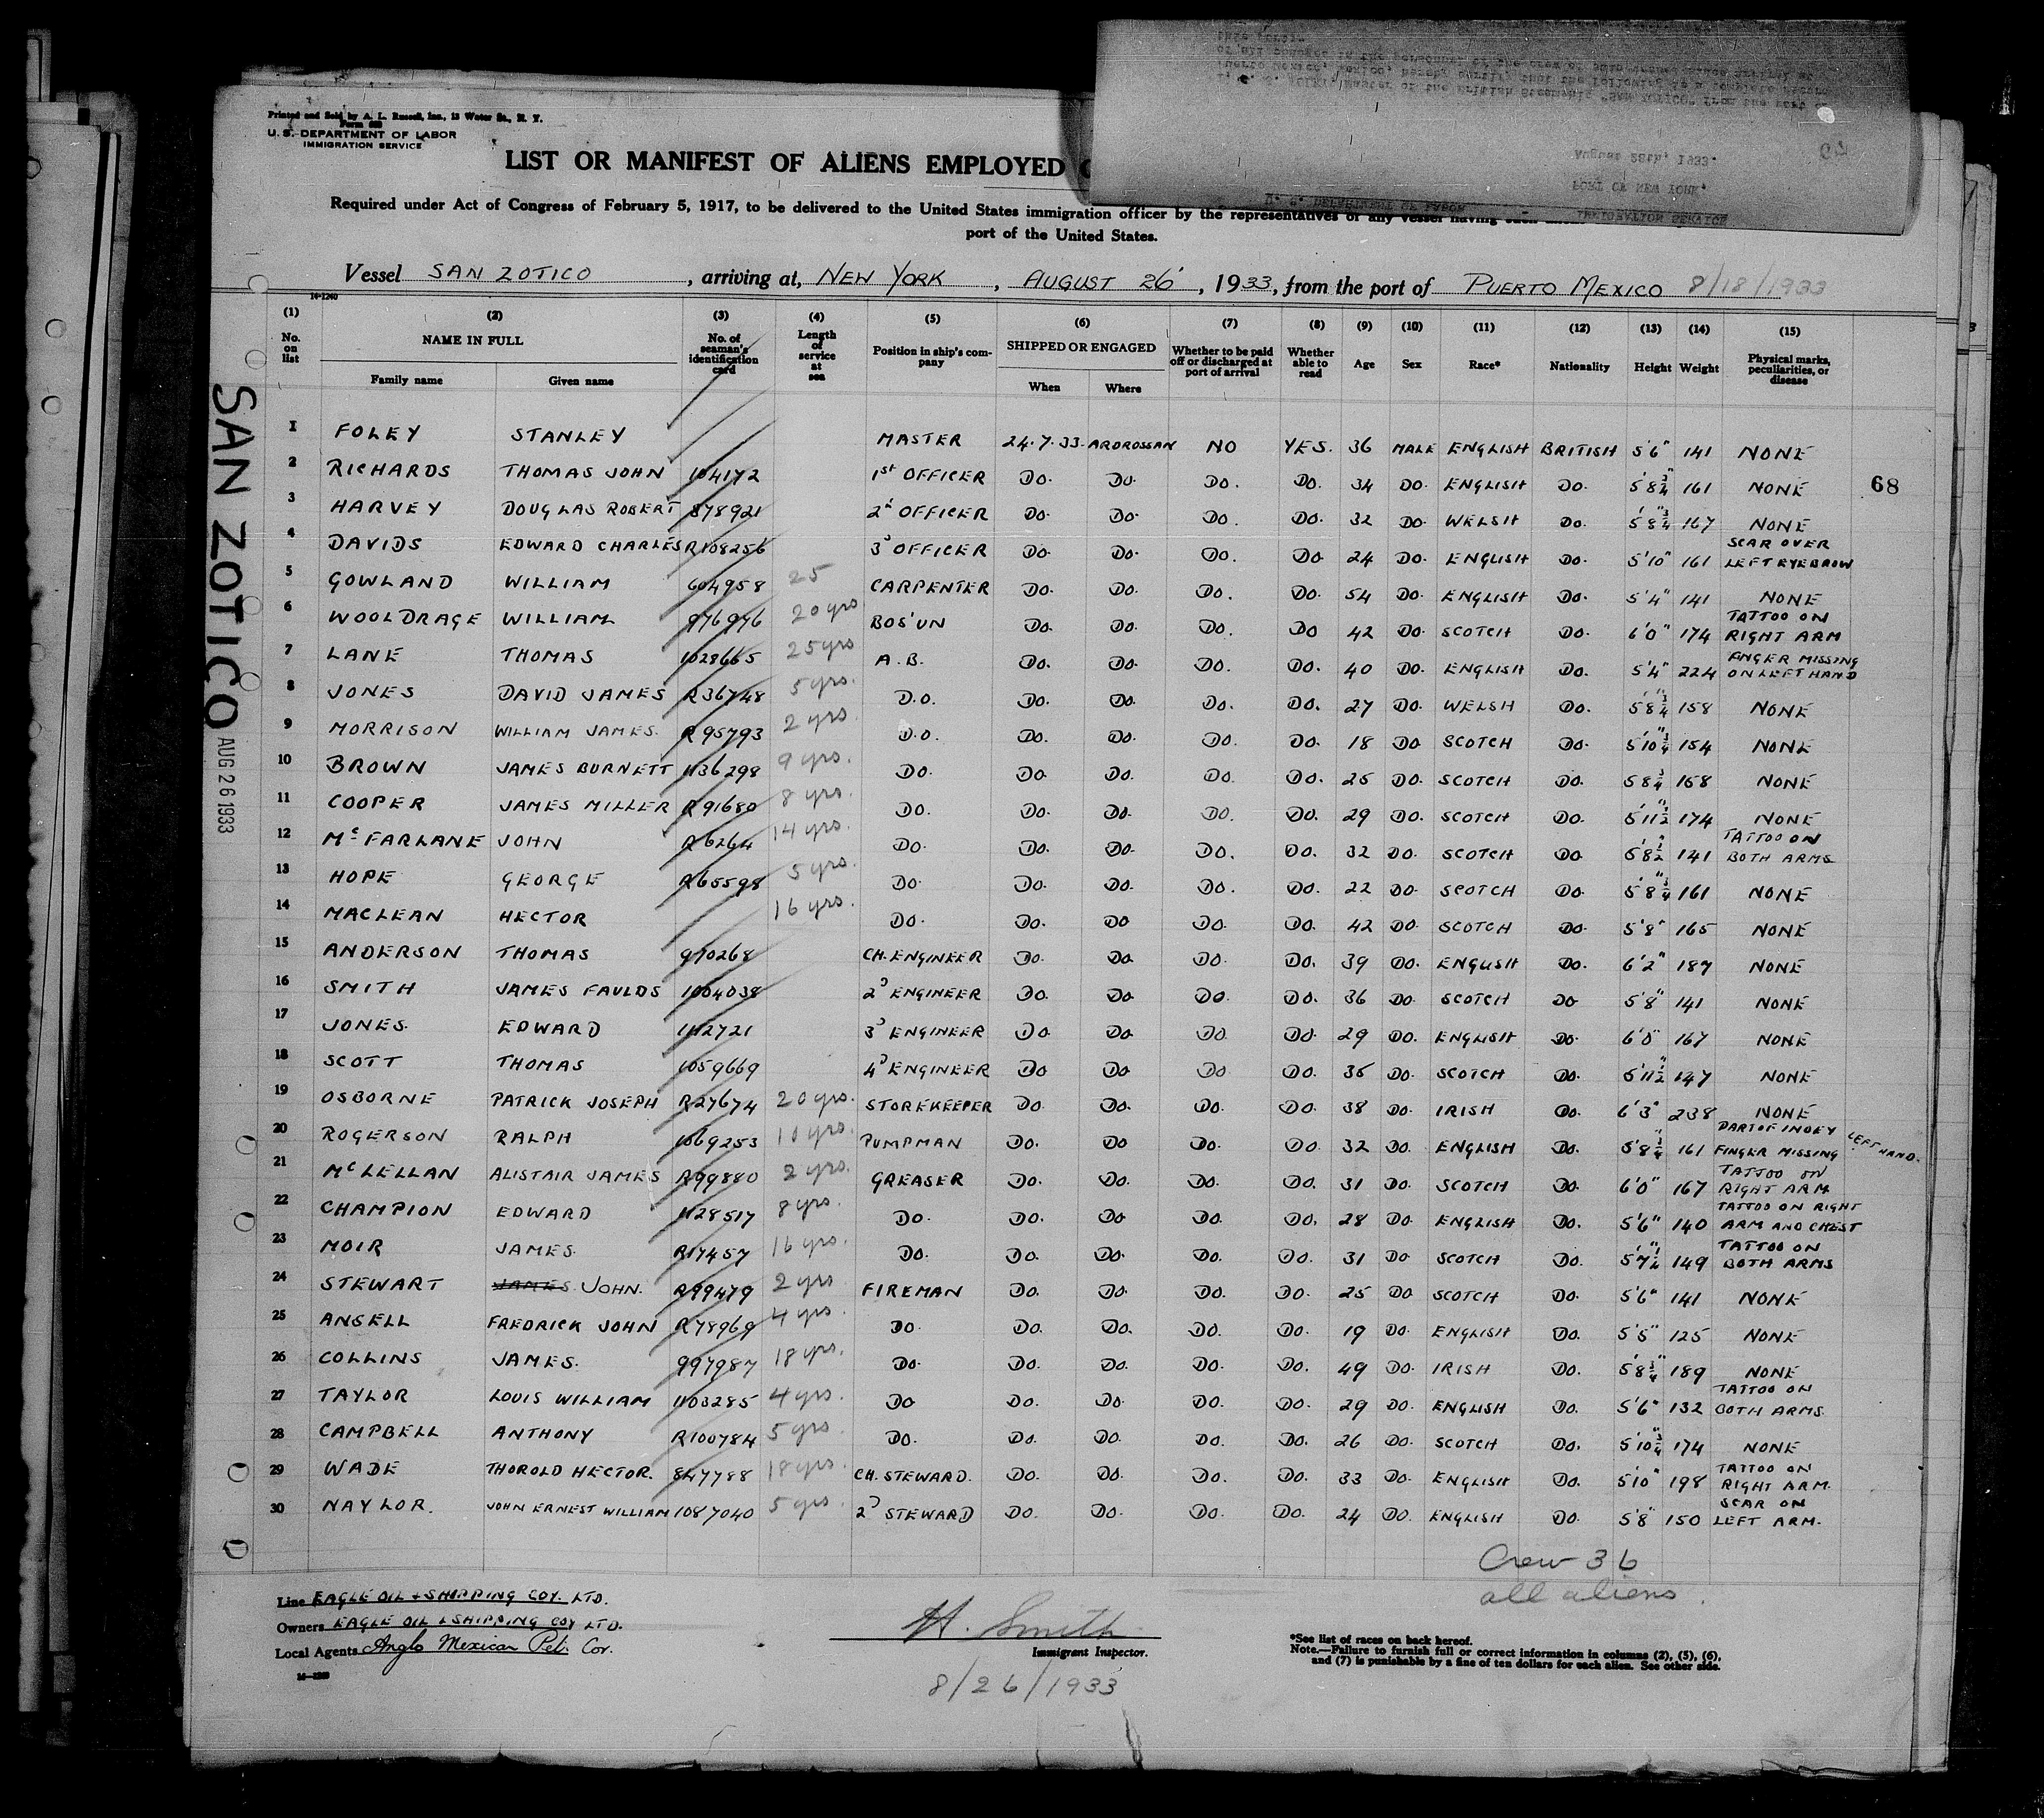 Printed and Sold by A. L. Russell, Inc., 13 Water St., N. Y.
U. S. DEPARTMENT OF LABOR
IMMIGRATION SERVICE
LIST OR MANIFEST OF ALIENS EMPLOYED
August 28th, 1933.
PORT OF NEW YORK,
IMMIGRATION SERVICE
Required under Act of Congress of February 5, 1917, to be delivered to the United States immigration officer by the representatives of any vessel having such
port of the United States.
Vessel SAN ZOTICO, arriving at, NEW YORK, AUGUST 26, 1933, from the port of PUERTO MEXICO 8/18/1933
14-1240
(1) (2) (3) (4) (5) (6) (7) (8) (9) (10) (11) (12) (13) (14) (15)
No. on list NAME IN FULL Family name Given name No. of seaman's identification card Length of service at sea Position in ship's company SHIPPED OR ENGAGED When Where Whether to be paid off or discharged at port of arrival Whether able to read Age Sex Race* Nationality Height Weight Physical marks, peculiarities, or disease
1 FOLEY STANLEY MASTER 24.7.33. ARDROSSAN NO YES. 36 MALE ENGLISH BRITISH 5'6" 141 NONE
2 RICHARDS THOMAS JOHN 104172 1st OFFICER DO. DO. DO. DO. 34 DO. ENGLISH DO. 5'8¾" 161 NONE 68
3 HARVEY DOUGLAS ROBERT 878921 2d OFFICER DO. DO. DO. DO. 32 DO. WELSH DO. 5'8¾" 167 NONE
4 DAVIDS EDWARD CHARLES R108256 3D OFFICER DO. DO. DO. DO 24 DO. ENGLISH DO. 5'10" 161 SCAR OVER LEFT EYEBROW
5 GOWLAND WILLIAM 604958 25 CARPENTER DO. DO. DO. DO. 54 DO. ENGLISH DO. 5'4" 141 NONE
6 WOOLDRAGE WILLIAM 976976 20 yrs BOS'UN DO. DO. DO. DO 42 DO. SCOTCH DO. 6'0" 174 TATTOO ON RIGHT ARM
7 LANE THOMAS 1028665 25 yrs A.B. DO. DO. DO. DO. 40 DO. ENGLISH DO. 5'4" 224 FINGER MISSING ON LEFT HAND
8 JONES DAVID JAMES R36748 5 yrs. D.O. DO. DO. DO. DO. 27 DO. WELSH DO. 5'8¾" 158 NONE
9 MORRISON WILLIAM JAMES. R95793 2 yrs. D.O. DO. DO. DO. DO. 18 DO SCOTCH DO. 5'10¾" 154 NONE
10 BROWN JAMES BURNETT 1136298 9 yrs. DO. DO. DO. DO. DO. 25 DO. SCOTCH DO. 5 8¾ 158 NONE
11 COOPER JAMES MILLER R91680 8 yrs. DO. DO. DO. DO. DO. 29 DO. SCOTCH DO. 5'11½" 174 NONE
12 McFARLANE JOHN R6264 14 yrs. DO. DO. DO. DO. DO. 32 DO. SCOTCH DO 5'8½" 141 TATTOO ON BOTH ARMS
13 HOPE GEORGE R65598 5 yrs. DO. DO. DO. DO. DO. 22 DO. SCOTCH DO. 5'8¾" 161 NONE
14 MACLEAN HECTOR 16 yrs. DO. DO. DO DO. DO. 42 DO. SCOTCH DO. 5'8" 165 NONE
15 ANDERSON THOMAS 970268 CH. ENGINEER DO. DO DO. DO. 39 DO. ENGLISH DO. 6'2" 187 NONE
16 SMITH JAMES FAULDS 1004038 2D ENGINEER DO. DO DO. DO. 36 DO SCOTCH DO 5'8" 141 NONE
17 JONES. EDWARD 1112721 3D ENGINEER DO DO DO DO. 29 DO. ENGLISH DO. 6'0" 167 NONE
18 SCOTT THOMAS 1059669 4D ENGINEER DO DO DO DO. 35 DO. SCOTCH DO. 5'11½" 147 NONE
19 OSBORNE PATRICK JOSEPH R27674 20 yrs. STOREKEEPER DO. DO. DO. DO. 38 DO. IRISH DO. 6'3" 238 NONE
20 ROGERSON RALPH 1069253 10 yrs. PUMPMAN DO. DO DO. DO 32 DO. ENGLISH DO. 5'8¾" 161 PART OF INDEX FINGER MISSING LEFT HAND.
21 McLELLAN ALISTAIR JAMES R99880 2 yrs. GREASER DO. DO. DO. DO. 31 DO. SCOTCH DO 6'0" 167 TATTOO ON RIGHT ARM
22 CHAMPION EDWARD 1128517 8 yrs. DO. DO. DO DO. DO. 28 DO. ENGLISH DO. 5'6" 140 TATTOO ON RIGHT ARM AND CHEST
23 MOIR JAMES. R17457 16 yrs. DO. DO. DO. DO. DO. 31 DO SCOTCH DO. 5'7¼" 149 TATTOO ON BOTH ARMS
24 STEWART JAMES. JOHN. R99479 2 yrs FIREMAN DO. DO. DO. DO. 25 DO SCOTCH DO. 5'6" 141 NONE
25 ANSELL FREDRICK JOHN R78969 4 yrs. DO. DO. DO. DO. DO. 19 DO. ENGLISH DO. 5'5" 125 NONE
26 COLLINS JAMES. 997987 18 yrs. DO. DO. DO. DO. DO. 49 DO. IRISH DO. 5'8¾" 189 NONE
27 TAYLOR LOUIS WILLIAM 1103285 4 yrs. DO DO. DO. DO. DO. 29 DO. ENGLISH DO. 5'6" 132 TATTOO ON BOTH ARMS.
28 CAMPBELL ANTHONY R100784 5 yrs. DO. DO. DO. DO. DO. 26 DO. SCOTCH DO. 5'10¾" 174 NONE
29 WADE THOROLD HECTOR. 847788 18 yrs. CH. STEWARD. DO. DO. DO. DO. 33 DO. ENGLISH DO. 5'10" 198 TATTOO ON RIGHT ARM.
30 NAYLOR. JOHN ERNEST WILLIAM 1087040 5 yrs. 2D STEWARD DO. DO. DO. DO. 24 DO. ENGLISH DO. 5'8" 150 SCAR ON LEFT ARM.
SAN ZOTICO AUG 26 1933
Crew 36
all aliens.
Line EAGLE OIL & SHIPPING COY. LTD.
Owners EAGLE OIL & SHIPPING COY LTD.
Local Agents Anglo Mexican Pet. Cor.
H. Smith
Immigrant Inspector.
8/26/1933
*See list of races on back hereof.
Note.—Failure to furnish full or correct information in columns (2), (5), (6),
and (7) is punishable by a fine of ten dollars for each alien. See other side.